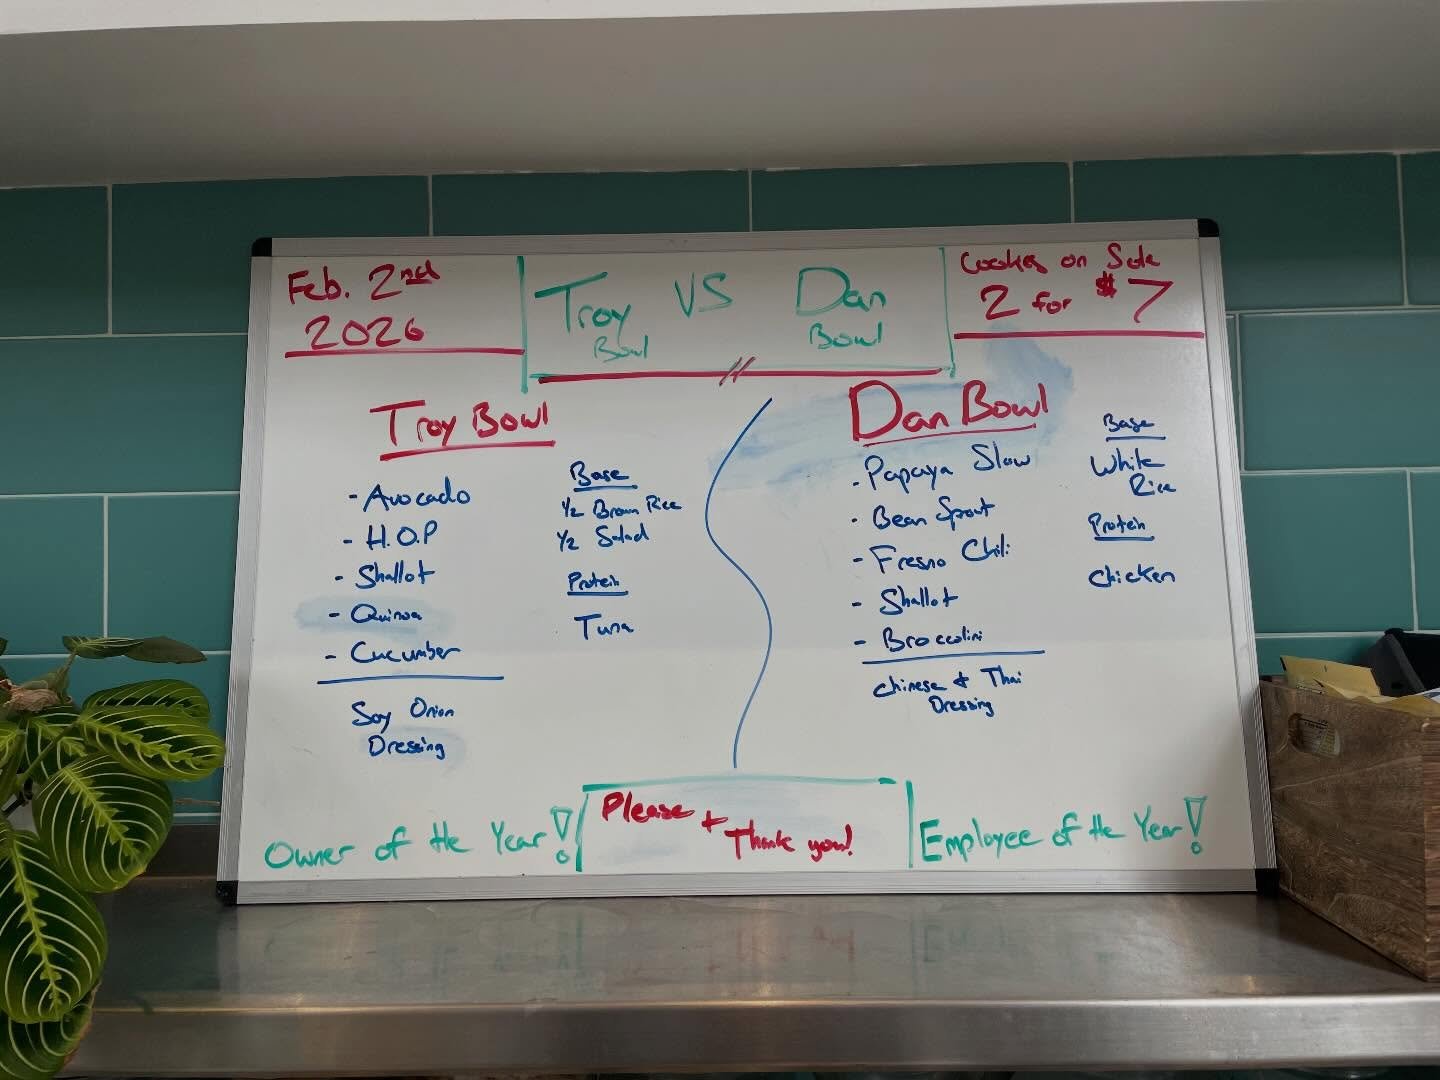 Feb. 2nd
2026
Troy VS Dan
Bowl Bowl
Cookies on Sale
2 for $7
Troy Bowl
- Avocado
- H.O.P
- Shallot
- Quinoa
- Cucumber
Soy Onion
Dressing
Base
1/2 Brown Rice
1/2 Salad
Protein
Tuna
Dan Bowl
- Papaya Slow
- Bean Sprout
- Fresno Chili
- Shallot
- Broccolini
Chinese + Thai
Dressing
Base
White
Rice
Protein
Chicken
Owner of the Year!
Please +
Thank you!
Employee of the Year!